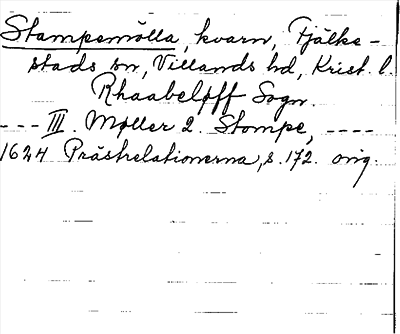 Stampemölla, kvarn, Fjälke-
stads sn, Villands hd, Krist. l.
Rhaabeløff Sogn.
--- III. Møller 2. Stompe, ----
1624 Prästrelationerna, s. 172. orig.